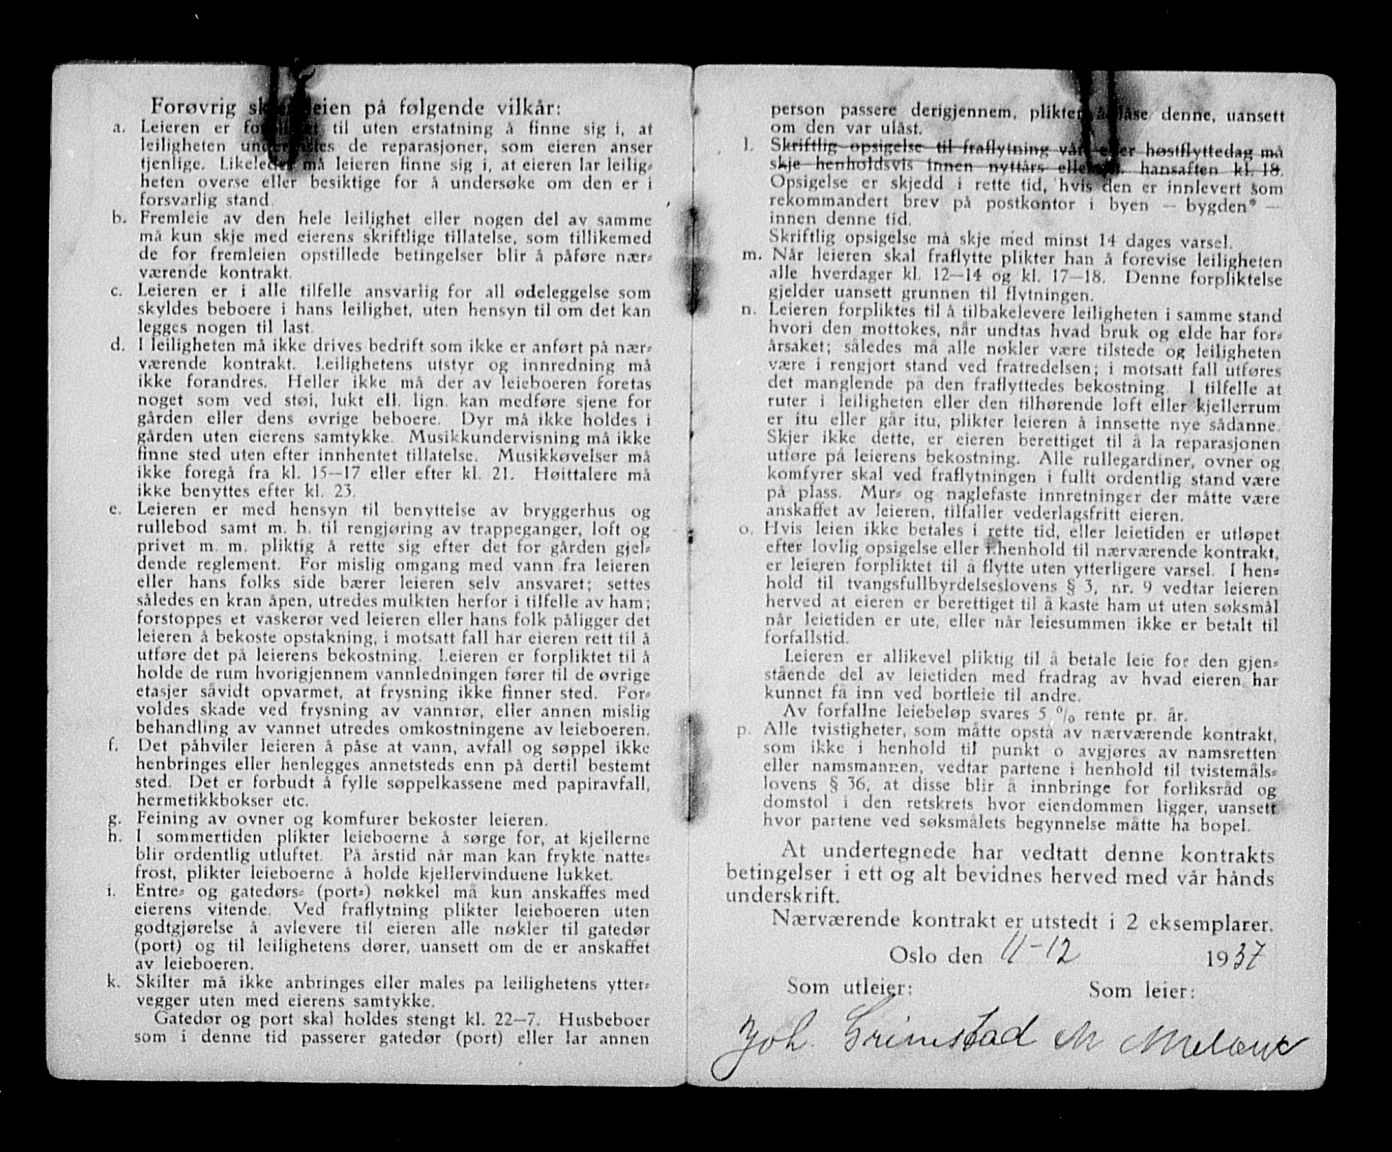 Forøvrig skjer leien på følgende vilkår:
a. Leieren er forpliktet til uten erstatning å finne sig i, at
leiligheten undergaaes de reparasjoner, som eieren anser
tjenlige. Likeledes må leieren finne sig i, at eieren lar leilig-
heten overse eller besiktige for å undersøke om den er i
forsvarlig stand.
b. Fremleie av den hele leilighet eller nogen del av samme
må kun skje med eierens skriftlige tillatelse, som tillikemed
de for fremleien opstillede betingelser blir å påføre nær-
værende kontrakt.
c. Leieren er i alle tilfelle ansvarlig for all ødeleggelse som
skyldes beboere i hans leilighet, uten hensyn til om det kan
legges nogen til last.
d. I leiligheten må ikke drives bedrift som ikke er anført på nær-
værende kontrakt. Leilighetens utstyr og innredning må
ikke forandres. Heller ikke må der av leieboeren foretas
noget som ved støi, lukt ell. lign. kan medføre sjene for
gården eller dens øvrige beboere. Dyr må ikke holdes i
gården uten eierens samtykke. Musikkundervisning må ikke
finne sted uten efter innhentet tillatelse. Musikkøvelser må
ikke foregå fra kl. 15—17 eller efter kl. 21. Høittalere må
ikke benyttes efter kl. 23.
e. Leieren er med hensyn til benyttelse av bryggerhus og
rullebod samt m. h. til rengjøring av trappeganger, loft og
privet m. m. pliktig å rette sig efter det for gården gjel-
dende reglement. For mislig omgang med vann fra leieren
eller hans folks side bærer leieren selv ansvaret; settes
således en kran åpen, utredes mulkten herfor i tilfelle av ham;
forstoppes et vaskerør ved leieren eller hans folk påligger det
leieren å bekoste opstakning, i motsatt fall har eieren rett til å
utføre det på leierens bekostning. Leieren er forpliktet til å
holde de rum hvorigjennem vannledningen fører til de øvrige
etasjer såvidt opvarmet, at frysning ikke finner sted. For-
voldes skade ved frysning av vannrør, eller annen mislig
behandling av vannet utredes omkostningene av leieboeren.
f. Det påhviler leieren å påse at vann, avfall og søppel ikke
henbringes eller henlegges annetsteds enn på dertil bestemt
sted. Det er forbudt å fylle søppelkassene med papiravfall,
hermetikkbokser etc.
g. Feining av ovner og komfurer bekoster leieren.
h. I sommertiden plikter leieboerne å sørge for, at kjellerne
blir ordentlig utluftet. På årstid når man kan frykte natte-
frost, plikter leieboerne å holde kjellervinduene lukket.
i. Entre- og gatedørs- (port-) nøkkel må kun anskaffes med
eierens vitende. Ved fraflytning plikter leieboeren uten
godtgjørelse å avlevere til eieren alle nøkler til gatedør
(port) og til leilighetens dører, uansett om de er anskaffet
av leieboeren.
k. Skilter må ikke anbringes eller males pa leilighetens ytter-
vegger uten med eierens samtykke.
Gatedør og port skal holdes stengt kl. 22—7. Husbeboer
som i denne tid passerer gatedør (port) eller lar annen
person passere derigjennem, plikter å låse denne, uansett
om den var ulåst.
l. Skriftlig opsigelse til fraflytning vår- eller høstflyttedag må
skje henholdsvis innen nyttårs eller st. hansaften kl. 18.
Opsigelse er skjedd i rette tid, hvis den er innlevert som
rekommandert brev på postkontor i byen — bygden* —
innen denne tid.
Skriftlig opsigelse må skje med minst 14 dages varsel.
m. Når leieren skal fraflytte plikter han å forevise leiligheten
alle hverdager kl. 12—14 og kl. 17—18. Denne forpliktelse
gjelder uansett grunnen til flytningen.
n. Leieren forpliktes til å tilbakelevere leiligheten i samme stand
hvori den mottokes, når undtas hvad bruk og elde har for-
årsaket; således må alle nøkler være tilstede og leiligheten
være i rengjort stand ved fratredelsen; i motsatt fall utføres
det manglende på den fraflyttedes bekostning. I tilfelle at
ruter i leiligheten eller den tilhørende loft eller kjellerrum
er itu eller går itu, plikter leieren å innsette nye sådanne.
Skjer ikke dette, er eieren berettiget til å la reparasjonen
utføre på leierens bekostning. Alle rullegardiner, ovner og
komfyrer skal ved fraflytningen i fullt ordentlig stand være
på plass. Mur- og naglefaste innretninger der måtte være
anskaffet av leieren, tilfaller vederlagsfritt eieren.
o. Hvis leien ikke betales i rette tid, eller leietiden er utløpet
efter lovlig opsigelse eller i henhold til nærværende kontrakt,
er leieren forpliktet til å flytte uten ytterligere varsel. I hen-
hold til tvangsfullbyrdelseslovens § 3, nr. 9 vedtar leieren
herved at eieren er berettiget til å kaste ham ut uten søksmål
når leietiden er ute, eller når leiesummen ikke er betalt til
forfallstid.
Leieren er allikevel pliktig til å betale leie for den gjen-
stående del av leietiden med fradrag av hvad eieren har
kunnet få inn ved bortleie til andre.
Av forfallne leiebeløp svares 5 % rente pr. år.
p. Alle tvistigheter, som måtte opstå av nærværende kontrakt,
som ikke i henhold til punkt o avgjøres av namsretten
eller namsmannen, vedtar partene i henhold til tvistemåls-
lovens § 36, at disse blir å innbringe for forliksråd og
domstol i den retskrets hvor eiendommen ligger, uansett
hvor partene ved søksmålets begynnelse måtte ha bopel.
At undertegnede har vedtatt denne kontrakts
betingelser i ett og alt bevidnes herved med vår hånds
underskrift.
Nærværende kontrakt er utstedt i 2 eksemplarer.
Oslo den 11-12 1937
Som utleier: Som leier:
Joh. Grimstad M